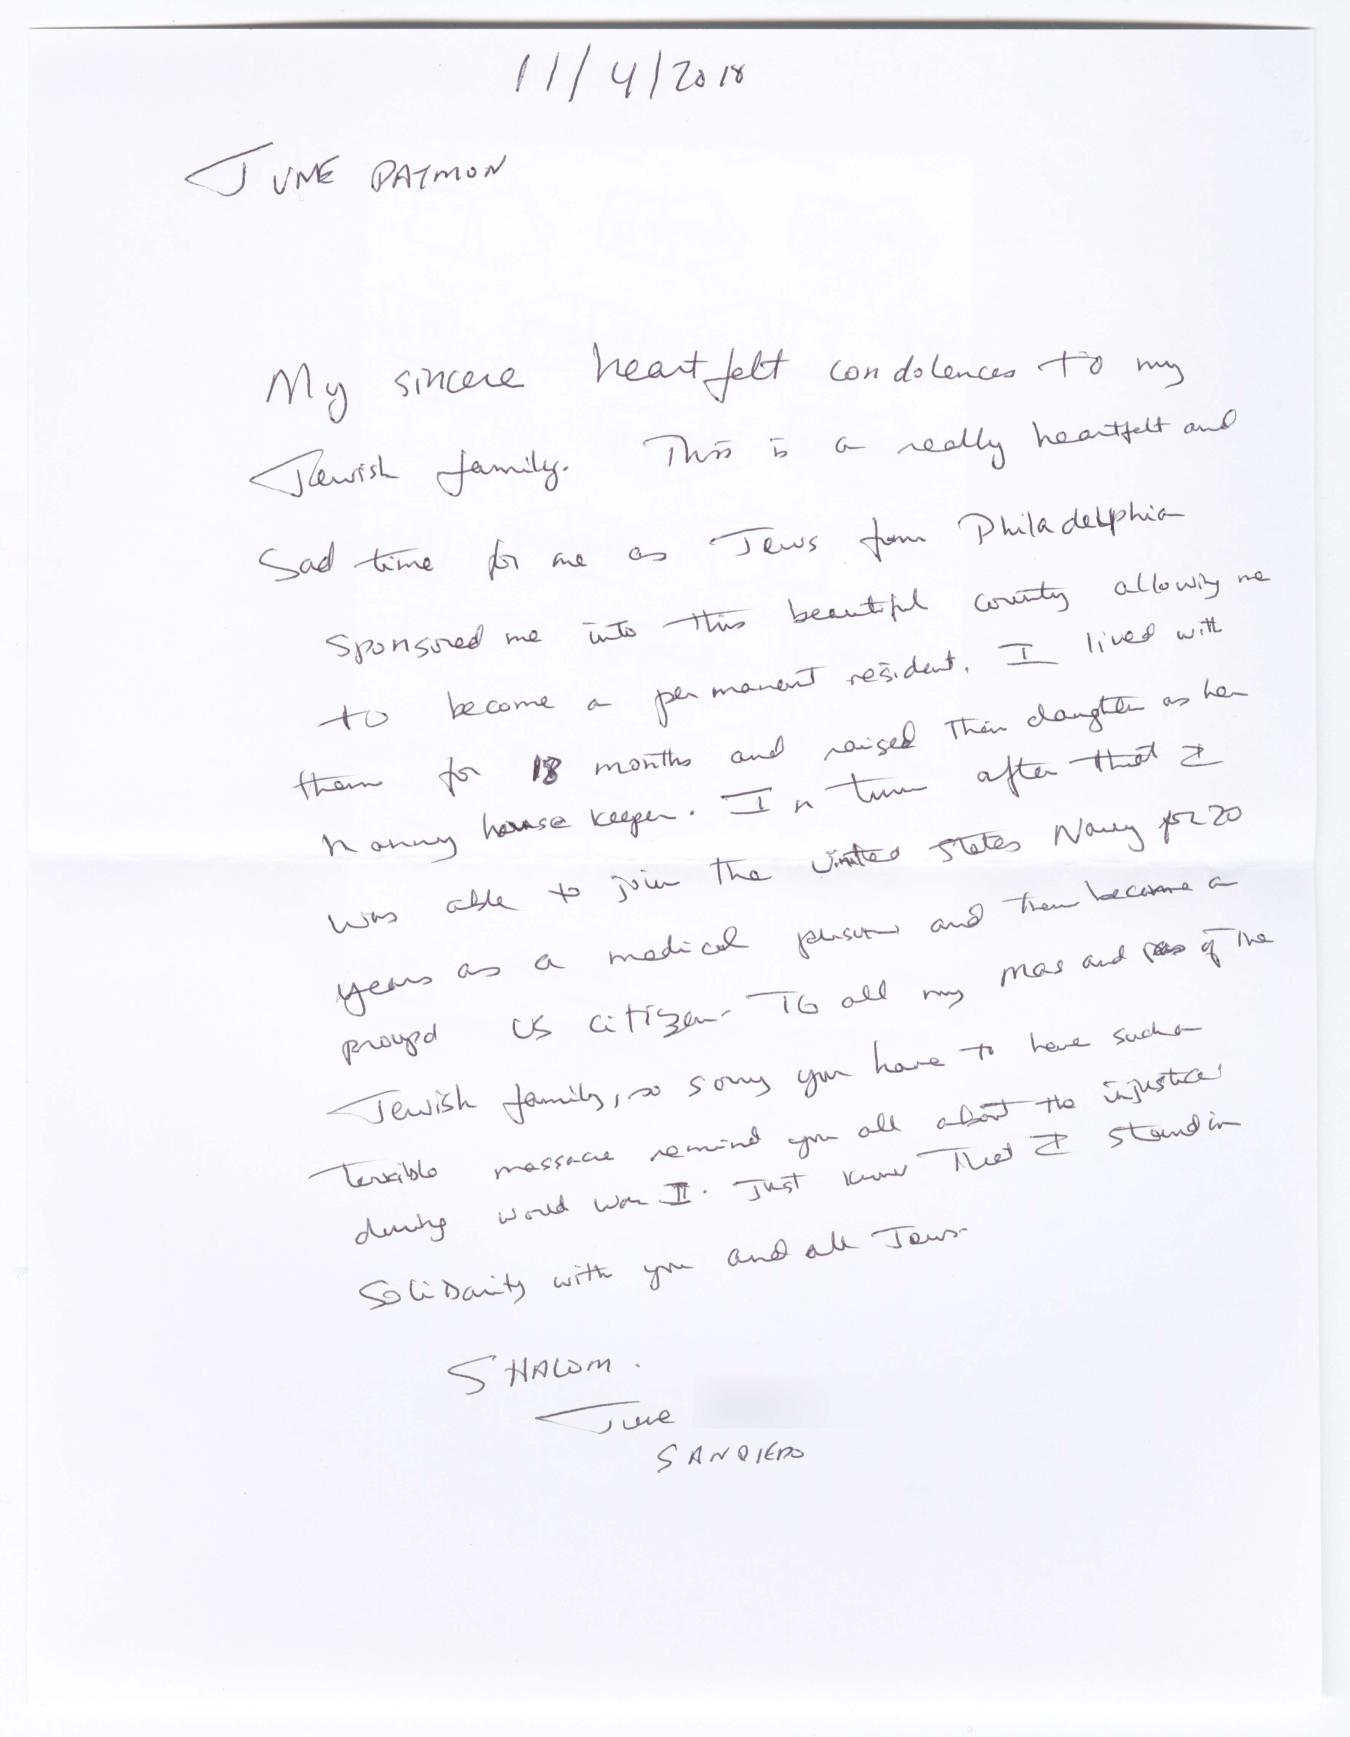 11/4/2018
JUNE PATMON
My sincere heartfelt condolences to my
Jewish family. This is a really heartfelt and
Sad time for me as Jews from Philadelphia
Sponsored me into this beautiful county allowing me
to become a permanent resident. I lived with
them for 18 months and raised their daughter as her
nanny house keeper. In turn after that I
was able to join the United States Navy for 20
years as a medical person and then became a
proupd US citizen. To all my mas and pas of the
Jewish family, so sorry you have to have such a
terrible massacre remind you all about the injustice
during world war II. Just know that I stand in
Solidarity with you and all Jews.
SHALOM.
June
SANDIEDO